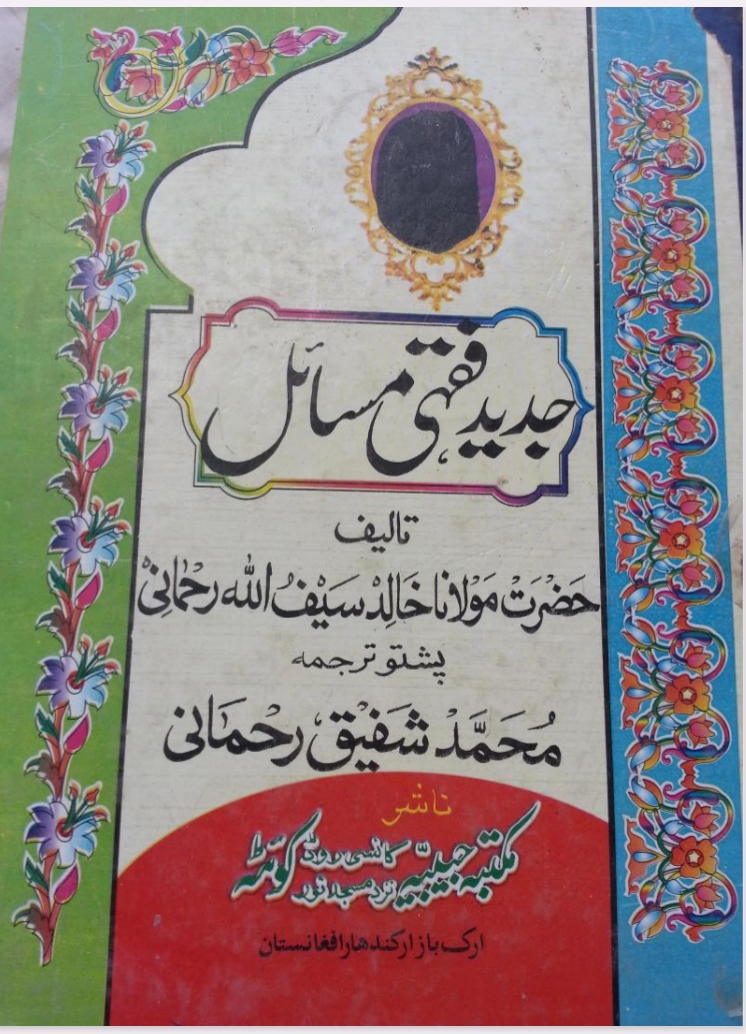 جدید فقہی مسائل
تالیف
حَضْرَتْ مَوْلَانَا خَالِدْ سَیْفُ اللّٰه رَحْمَانِیْ
پشتو ترجمه
مُحَمَّدْ شَفِیْق رَحْمَانی
ناشر
مکتبہ حبیبیّہ کانسی روڈ نزد مسجد نور کوئٹہ
ارک بازار کندهار افغانستان